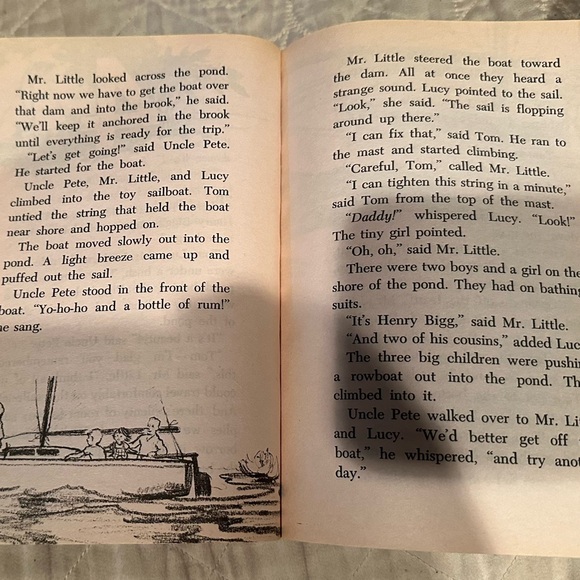 Mr. Little looked across the pond.
"Right now we have to get the boat over
that dam and into the brook," he said.
"We'll keep it anchored in the brook
until everything is ready for the trip."
"Let's get going!" said Uncle Pete.
He started for the boat.
Uncle Pete, Mr. Little, and Lucy
climbed into the toy sailboat. Tom
untied the string that held the boat
near shore and hopped on.
The boat moved slowly out into the
pond. A light breeze came up and
puffed out the sail.
Uncle Pete stood in the front of the
boat. "Yo-ho-ho and a bottle of rum!"
he sang.
Mr. Little steered the boat toward
the dam. All at once they heard a
strange sound. Lucy pointed to the sail.
"Look," she said. "The sail is flopping
around up there."
"I can fix that," said Tom. He ran to
the mast and started climbing.
"Careful, Tom," called Mr. Little.
"I can tighten this string in a minute,"
said Tom from the top of the mast.
"Daddy!" whispered Lucy. "Look!"
The tiny girl pointed.
"Oh, oh," said Mr. Little.
There were two boys and a girl on the
shore of the pond. They had on bathing
suits.
"It's Henry Bigg," said Mr. Little.
"And two of his cousins," added Luc
The three big children were pushin
a rowboat out into the pond. Th
climbed into it.
Uncle Pete walked over to Mr. Lit
and Lucy. "We'd better get off
boat," he whispered, "and try anot
day."